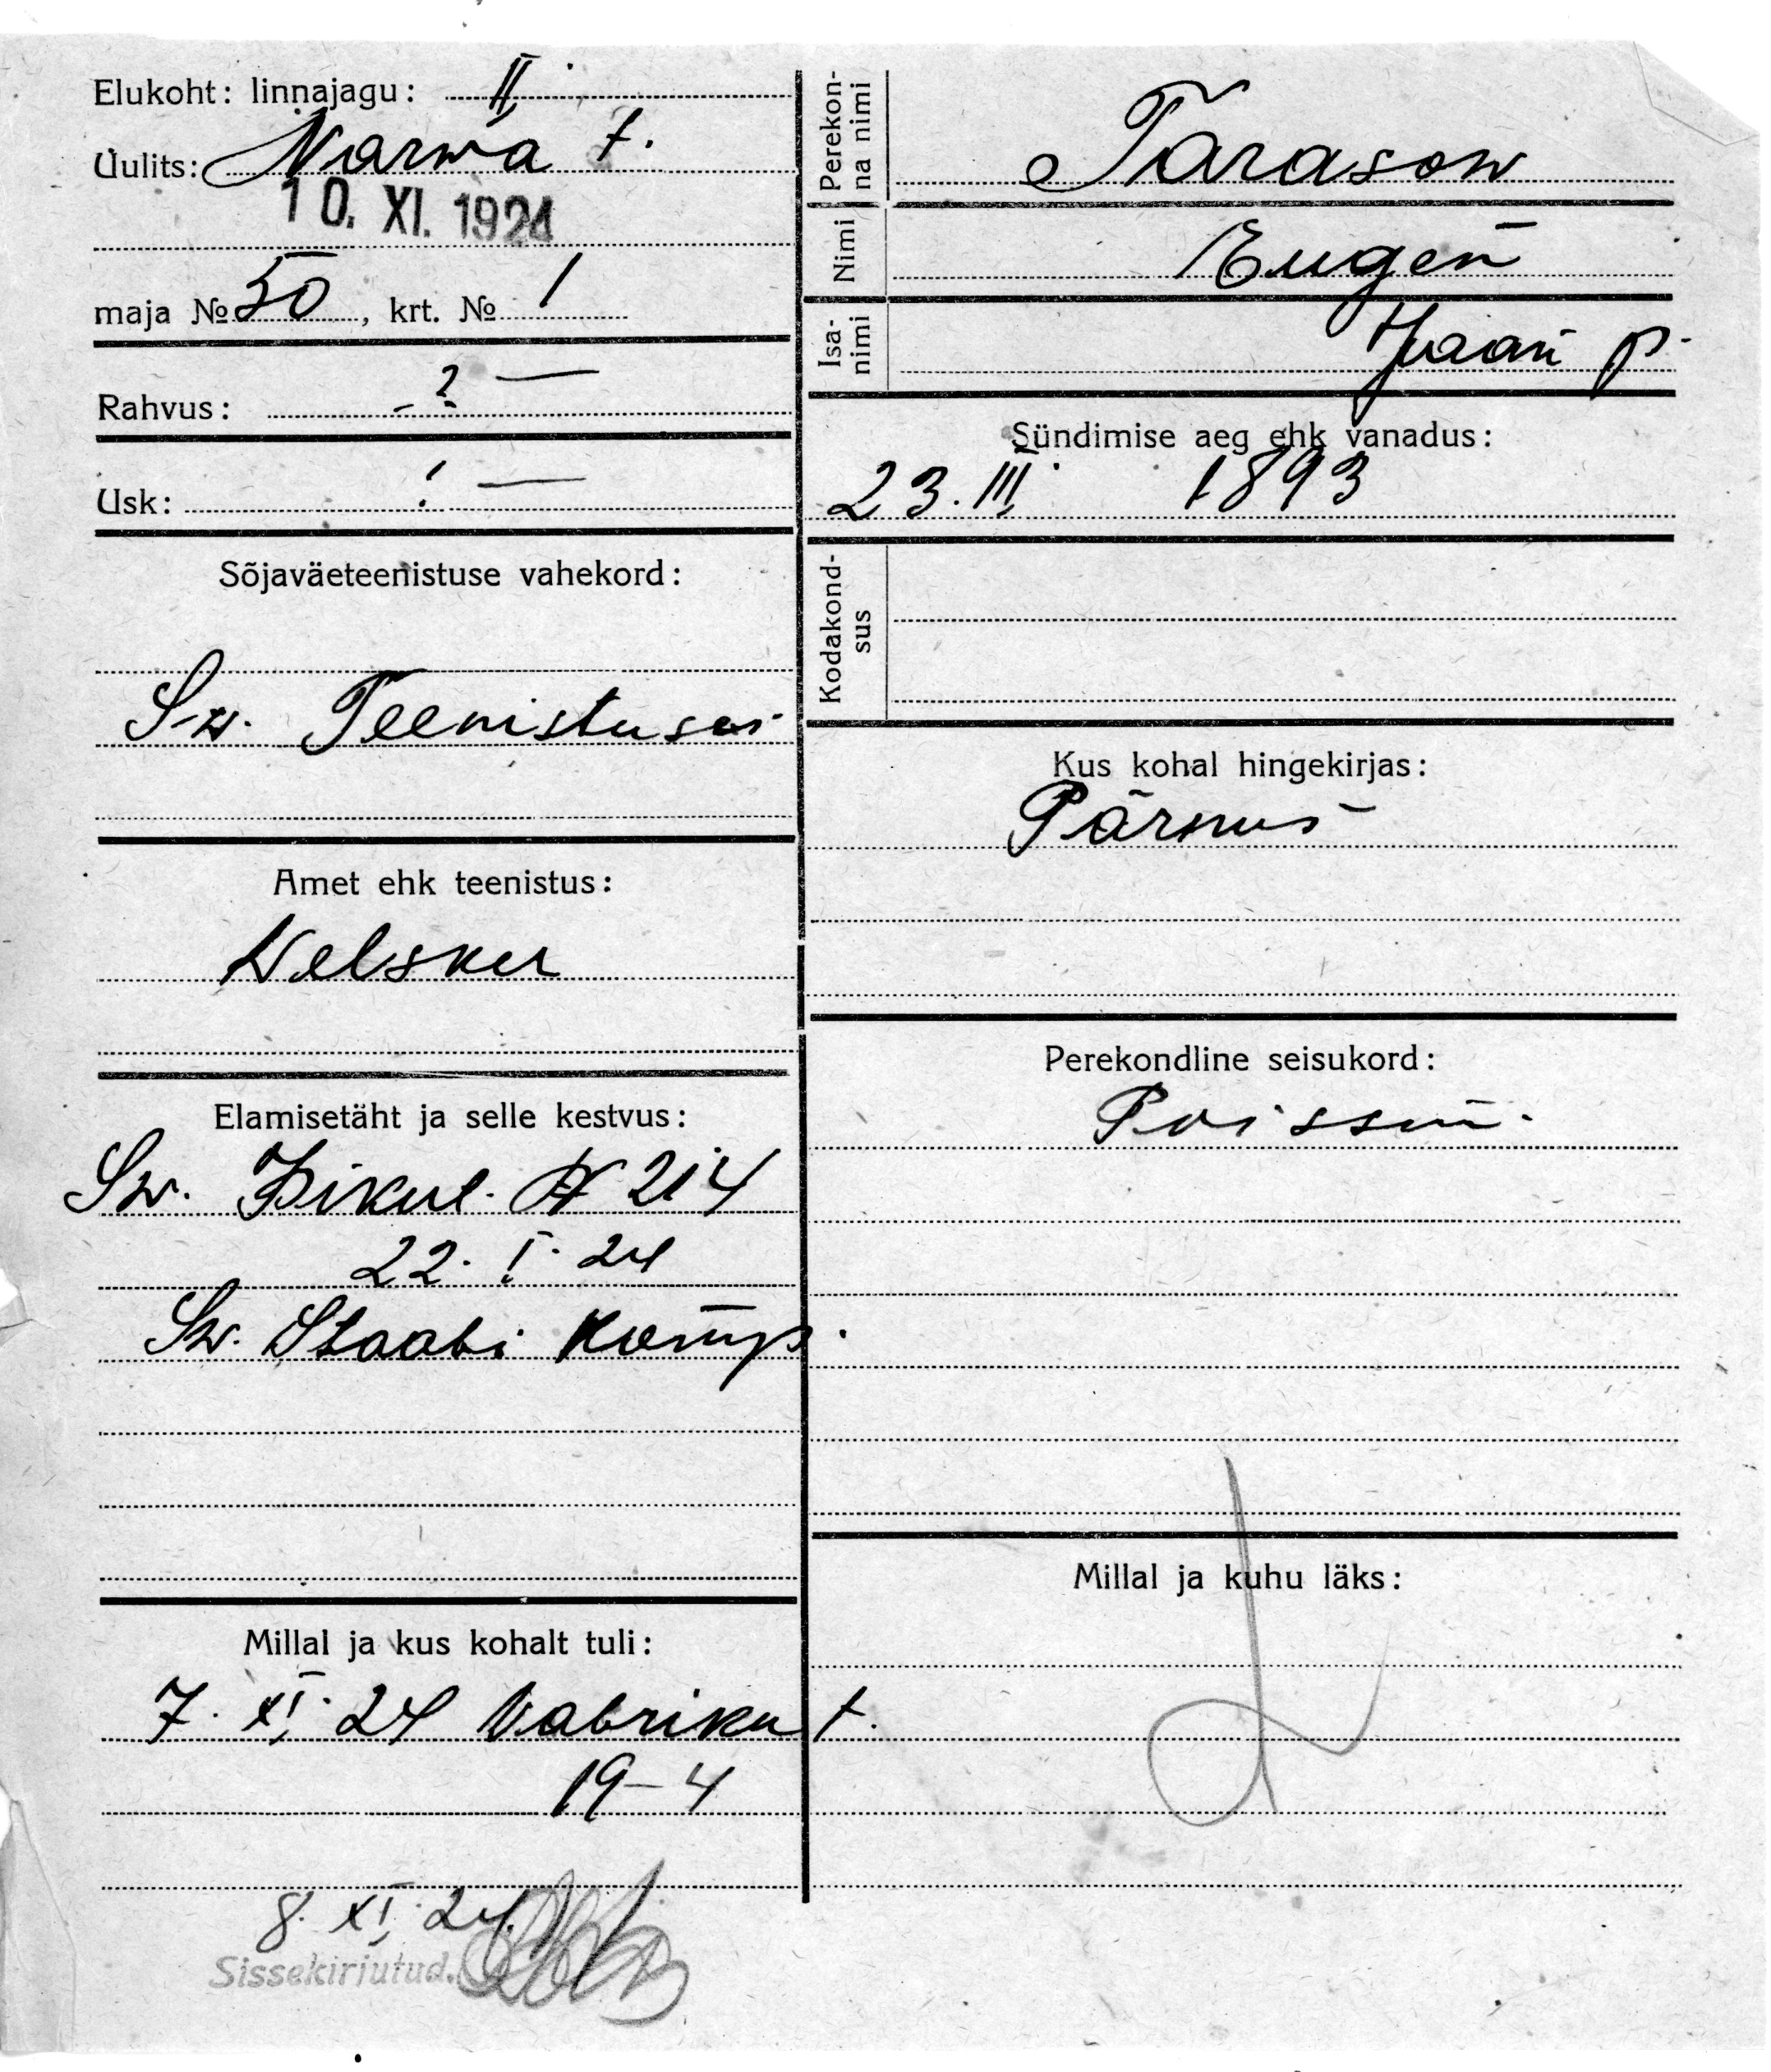 Elukoht: linnajagu: II
Uulits: Narwa t.
10. XI. 1924
maja № 50, krt. № 1
Rahvus: - ? —
Usk: ! —
Sõjaväeteenistuse vahekord:
S-w. Teenistuses
Amet ehk teenistus:
Welsker
Elamisetäht ja selle kestvus:
Sw. Pikul. № 214
22. I. 24
Sw. Staabi Komp.
Millal ja kus kohalt tuli:
7. XI. 24 Vabriku t.
19-4
8. XI. 24.
Sissekirjutud.
Perekonna nimi
Tarasow
Nimi
Eugen
Isanimi
Jvaan p.
Sündimise aeg ehk vanadus:
23. III. 1893
Kodakondsus
Kus kohal hingekirjas:
Pärnus
Perekondline seisukord:
Poissm.
Millal ja kuhu läks: